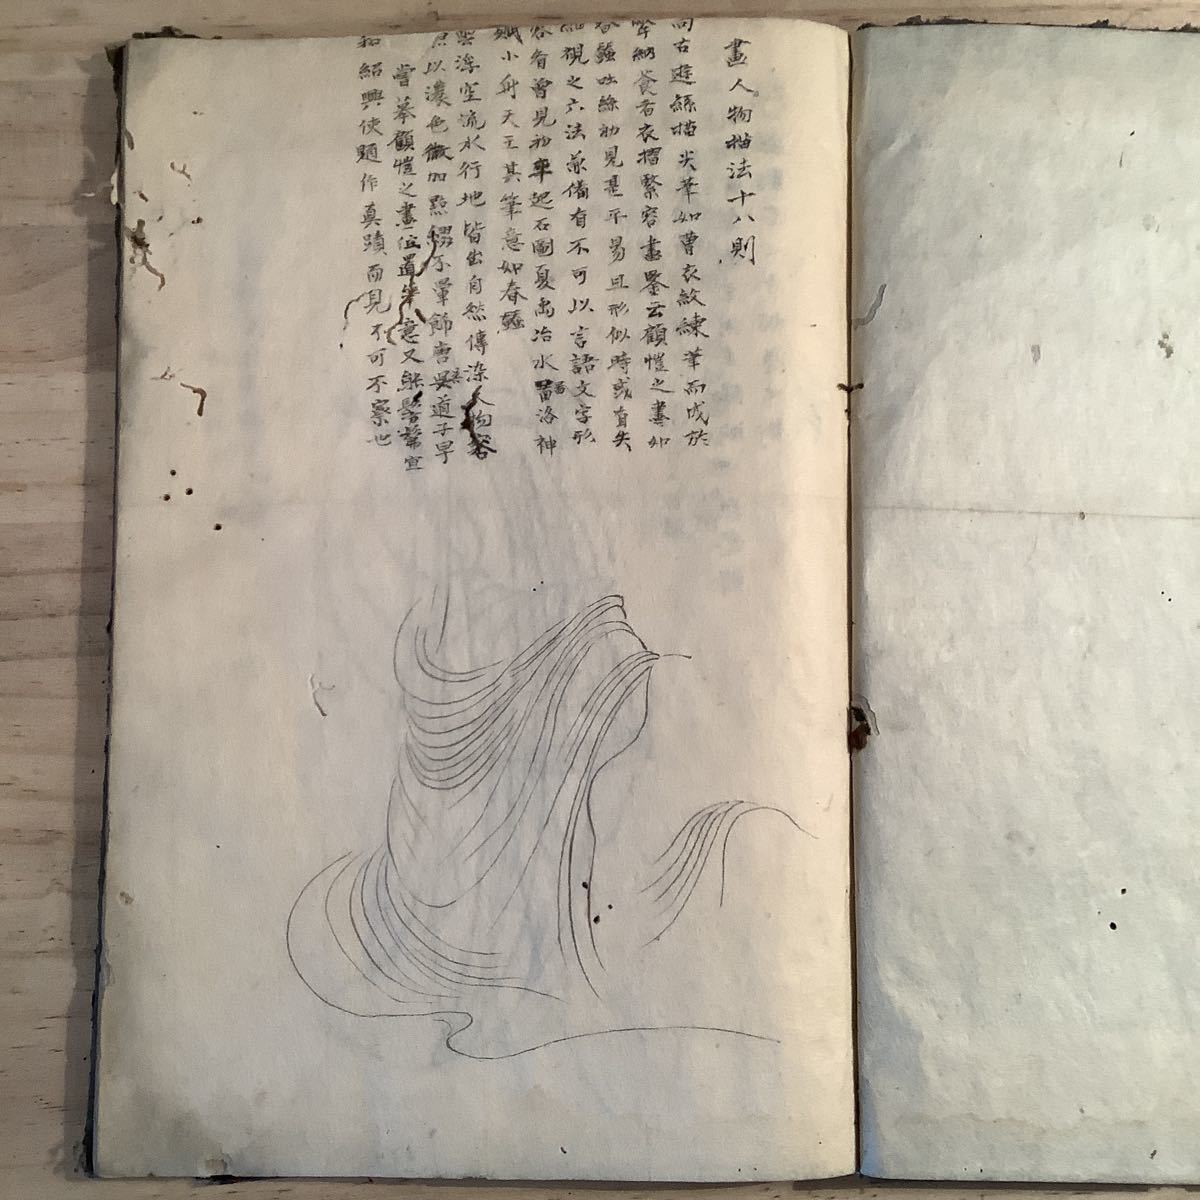 畫人物描法十八則
高古遊絲描尖筆如曹衣紋練筆而成於
擘納養者衣摺緊容畫鑒云顧愷之畫如
春蠶吐絲初見甚平易且形似時或有失
細視之六法兼備有不可以言語文字形
容者曾見初平起石圖夏禹治水畫洛神
賦小身天王其筆意如春蠶
雲浮空流水行地皆出自然傳染人物容
以濃色微加點綴不暈飾唐吳道子早
嘗摹顧愷之畫位置筆意又能髣髴宣
和紹興使題作真蹟而見不可不察也